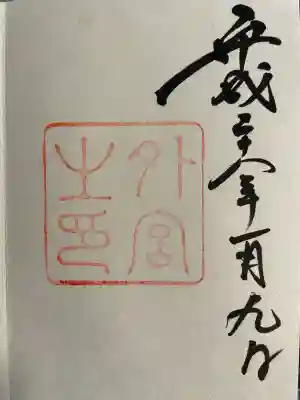 平成二十八年一月九日
外宮
之印